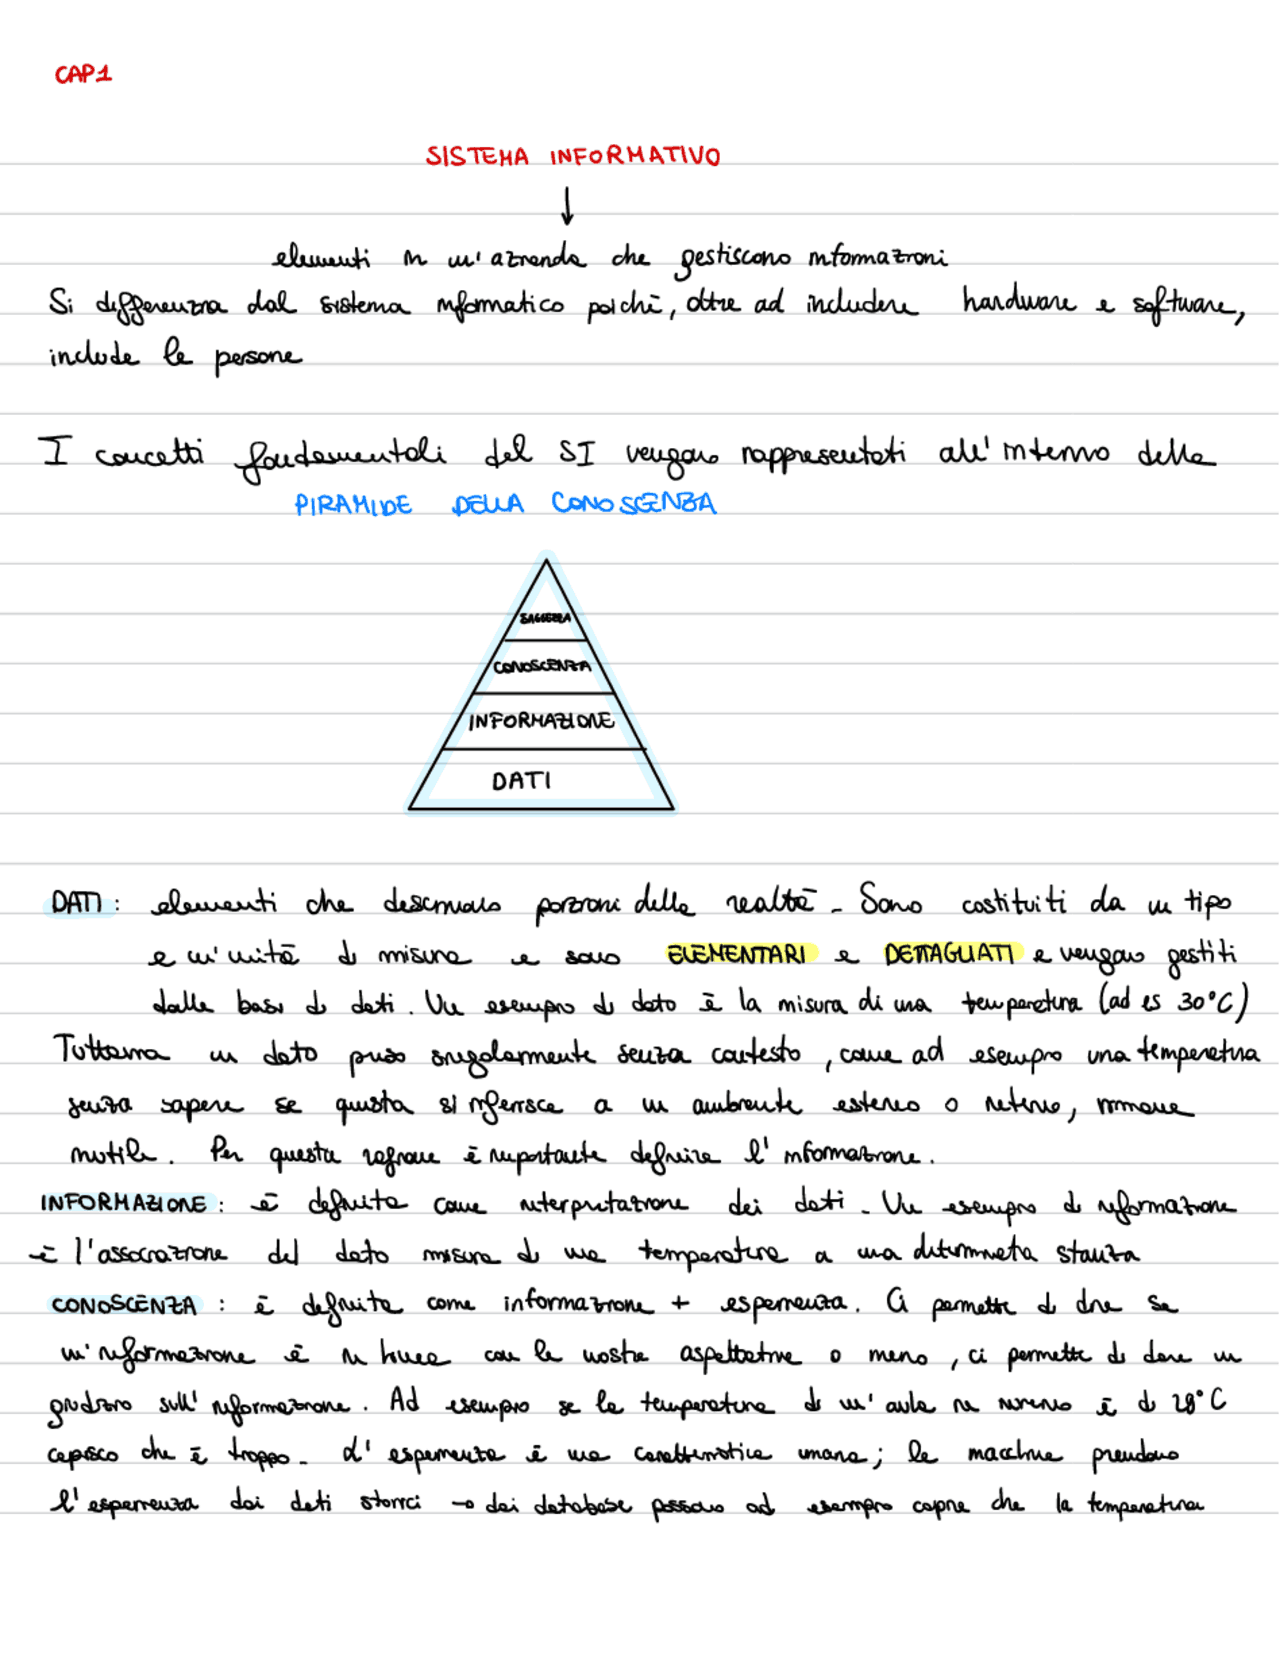 CAP1
SISTEMA INFORMATIVO
↓
elementi in un'azienda che gestiscono informazioni
Si differenzia dal sistema informatico poichè, oltre ad includere hardware e software,
include le persone
I concetti fondamentali del SI vengono rappresentati all'interno della
PIRAMIDE DELLA CONOSCENZA
SAGGEZZA
CONOSCENZA
INFORMAZIONE
DATI
DATI: elementi che descrivono porzioni della realtà. Sono costituiti da un tipo
e un'unità di misura e sono ELEMENTARI e DETTAGLIATI e vengono gestiti
dalle basi di dati. Un esempio di dato è la misura di una temperatura (ad es 30°C)
Tuttavia un dato preso singolarmente senza contesto, come ad esempio una temperatura
senza sapere se questa si riferisce a un ambiente esterno o interno, rimane
inutile. Per questa ragione è importante definire l'informazione.
INFORMAZIONE: è definita come interpretazione dei dati. Un esempio di informazione
è l'associazione del dato misura di una temperatura a una determinata stanza
CONOSCENZA: è definita come informazione + esperienza. Ci permette di dire se
un'informazione è in linea con le nostre aspettative o meno, ci permette di dare un
giudizio sull'informazione. Ad esempio se la temperatura di un'aula in inverno è di 28°C
capisco che è troppo. L'esperienza è una caratteristica umana; le macchine prendono
l'esperienza dai dati storici → dai database possono ad esempio capire che la temperatura